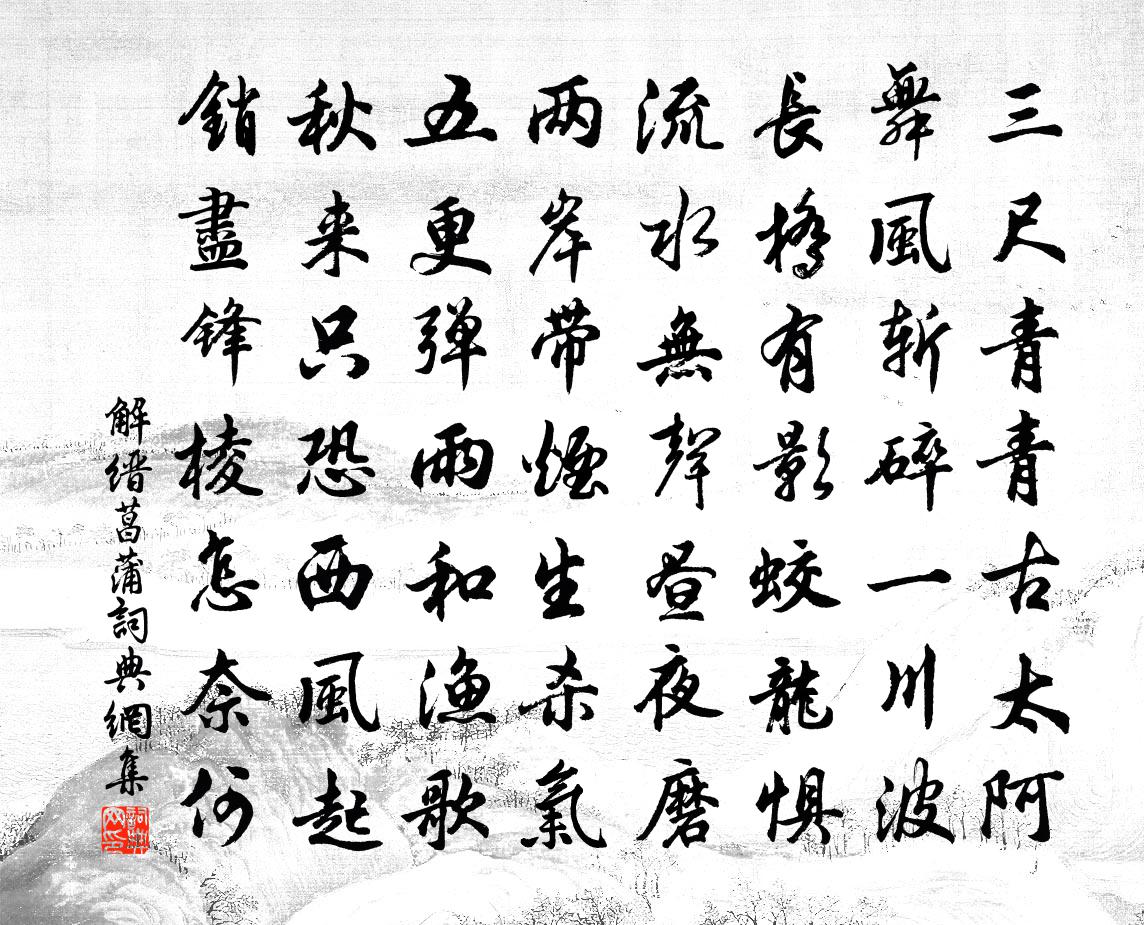 三尺青青古太阿
舞風斬碎一川波
長橋有影蛟龍懼
流水無聲晝夜磨
两岸带煙生杀氣
五更弹雨和漁歌
秋来只恐西風起
銷盡鋒棱怎奈何
解缙菖蒲詞典網集